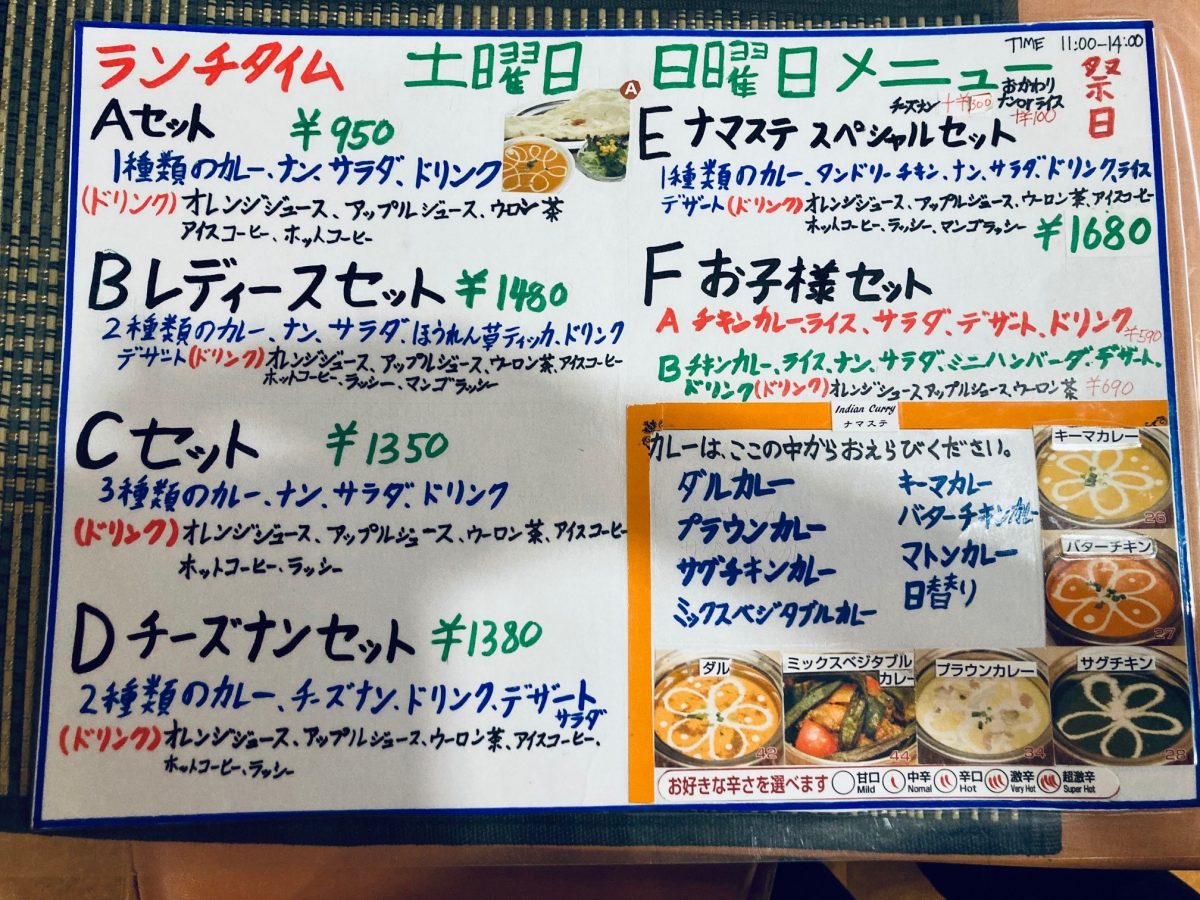 ランチタイム 土曜日 日曜日メニュー
TIME 11:00-14:00
祭日
チーズナン +¥300
おかわり
ナンorライス
+¥100
Aセット ¥950
1種類のカレー、ナン、サラダ、ドリンク
(ドリンク)オレンジジュース、アップルジュース、ウロン茶
アイスコーヒー、ホットコーヒー
A
Bレディースセット ¥1480
2種類のカレー、ナン、サラダ、ほうれん草ティッカ、ドリンク
デザート(ドリンク)オレンジジュース、アップルジュース、ウーロン茶、アイスコーヒー
ホットコーヒー、ラッシー、マンゴラッシー
Cセット ¥1350
3種類のカレー、ナン、サラダ、ドリンク
(ドリンク)オレンジジュース、アップルジュース、ウーロン茶、アイスコーヒー
ホットコーヒー、ラッシー
Dチーズナンセット ¥1380
2種類のカレー、チーズナン、ドリンク、デザート
サラダ
(ドリンク)オレンジジュース、アップルジュース、ウーロン茶、アイスコーヒー、
ホットコーヒー、ラッシー
Eナマステ スペシャルセット
1種類のカレー、タンドリーチキン、ナン、サラダ、ドリンク、ライス
デザート(ドリンク)オレンジジュース、アップルジュース、ウーロン茶、アイスコーヒー
ホットコーヒー、ラッシー、マンゴラッシー
¥1680
Fお子様セット
A チキンカレー、ライス、サラダ、デザート、ドリンク ¥590
Bチキンカレー、ライス、ナン、サラダ、ミニハンバーグ、デザート、
ドリンク(ドリンク)オレンジジュースアップルジュース、ウーロン茶 ¥690
Indian Curry
ナマステ
カレーは、ここの中からおえらびください。
ダルカレー
プラウンカレー
サグチキンカレー
ミックスベジタブルカレー
キーマカレー
バターチキンカレー
マトンカレー
日替り
キーマカレー
26
バターチキン
27
ダル
42
ミックスベジタブル
カレー
44
プラウンカレー
34
サグチキン
28
お好きな辛さを選べます 甘口 Mild 中辛 Nomal 辛口 Hot 激辛 Very Hot 超激辛 Super Hot